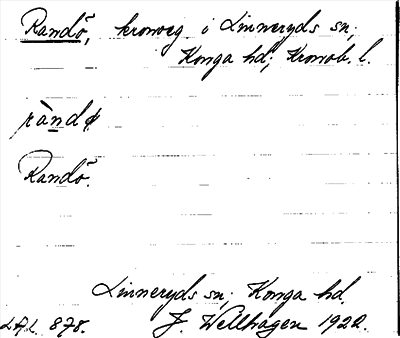 Randö, kronoeg i Linneryds sn;
Konga hd; Kronob. l.
ràndø
Randö.
Linneryds sn; Konga hd.
LAL 878. J. Wellhagen 1922.